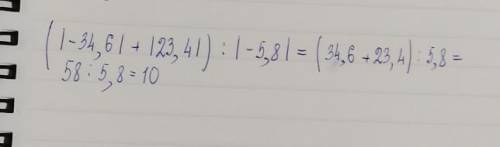 (|-34,6| + |23,4|) : |-5,8| = (34,6 + 23,4) : 5,8 =
58 : 5,8 = 10